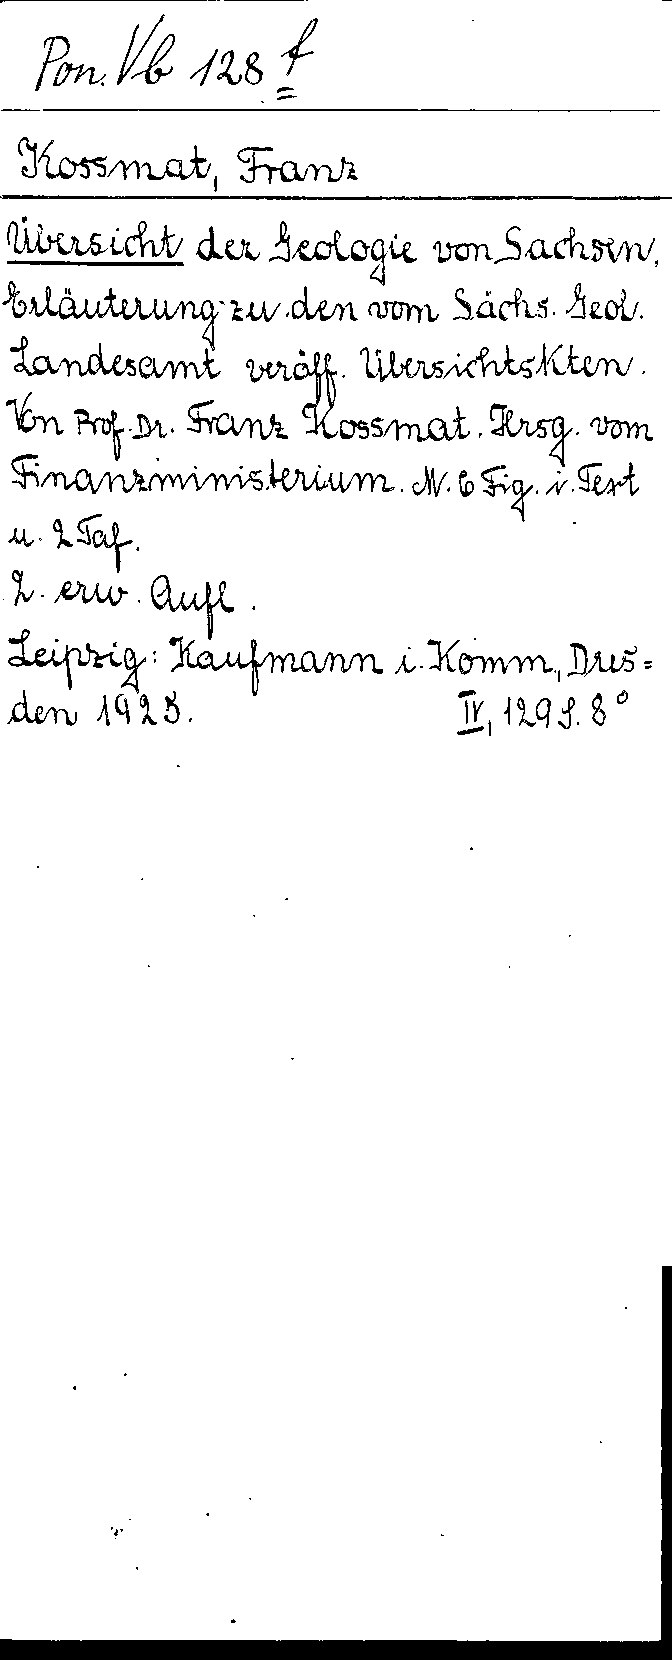 Pon. Vb 128 f
Kossmat, Franz
Übersicht der Geologie von Sachsen,
Erläuterung zu den vom Sächs. Geol.
Landesamt veröff. Übersichtskten.
Von Prof. Dr. Franz Kossmat. Hrsg. vom
Finanzministerium. M. 6 Fig. i. Text
u. 2 Taf.
2. erw. Aufl.
Leipzig: Kaufmann i. Komm., Dres=
den 1925. IV, 129 S. 8°